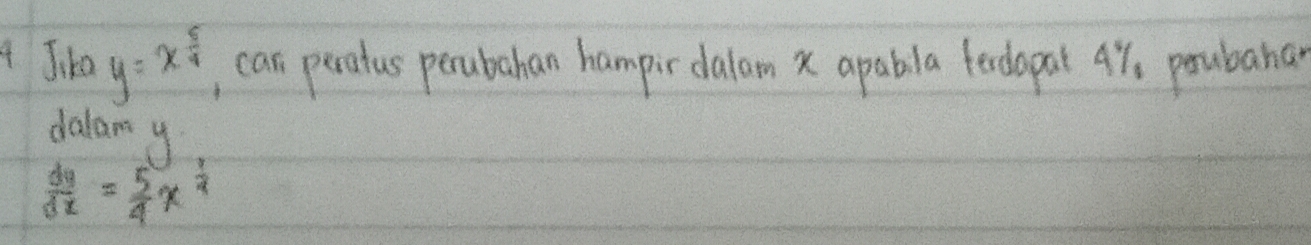 4 Jika y = x^(5/4), cari peratus perubahan hampir dalam x apabila terdapat 4% perubahan
dalam y.
dy/dx = 5/4 x^(1/4)